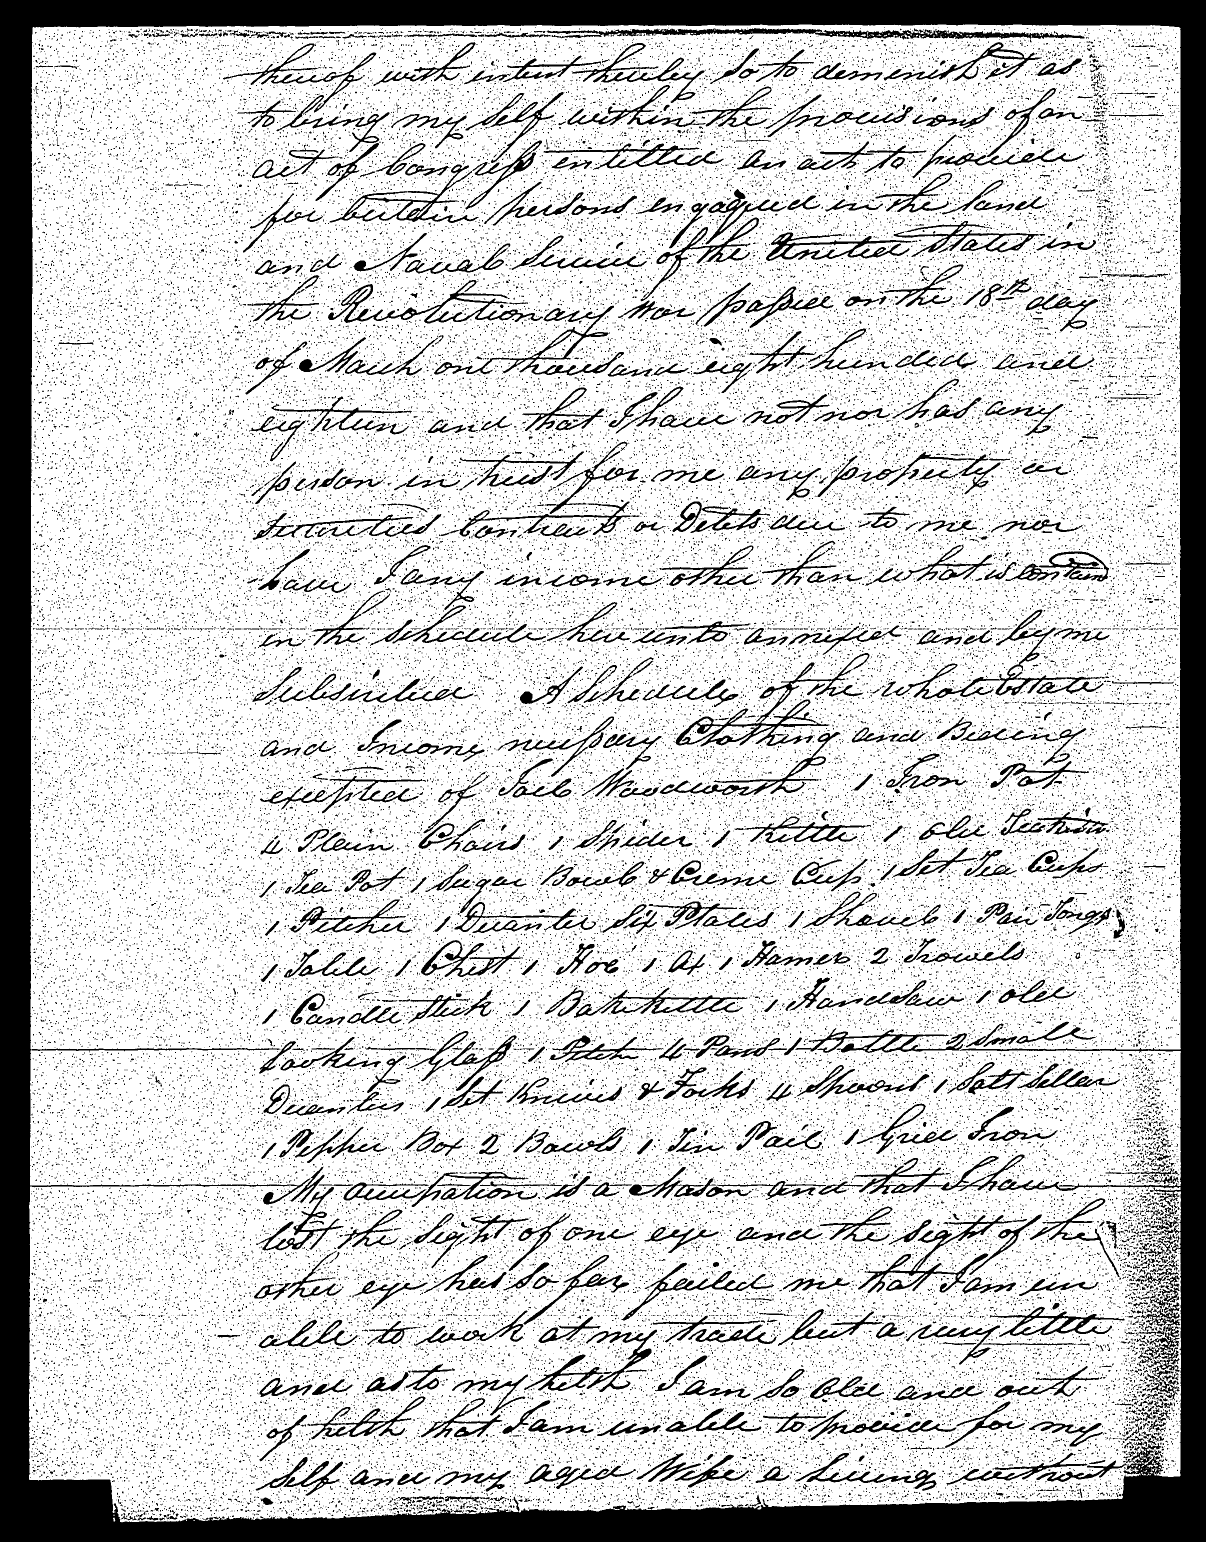 thereof with intent thereby so to demenish it as
to bring my self within the provisions of an
act of Congress entitled an act to provide
for certain persons engaged in the land
and Naval Service of the United States in
the Revolutionary war passed on the 18th day
of March one thousand eight hundred and
eighteen and that I have not nor has any
person in trust for me any property or
securities Contracts or Debts due to me nor
have I any income other than what is contain
in the schedule here unto annexed and by me
Subscribed A Schedule of the whole Estate
and Income necessary Clothing and Beding
excepted of Joel Woodworth 1 Iron Pot
4 Plain Chairs 1 Spider 1 Kittle 1 Old
1 Tea Pot 1 Sugar Bowl & Creme Cup 1 Set Tea Cups
1 Pitcher 1 Decanter Six Plates 1 Shovel 1 Pair Tongs
1 Table 1 Chest 1 Hoe 1 Ax 1 Hamer 2 Trowels
1 Candle Stick 1 Bake kettle 1 Hand Saw 1 old
Looking Glass 1 4 Pans 1 Bottle 2 Small
Decanters 1 Set Knives & Forks 4 Spoons 1 Salt Sellar
1 Pepper Box 2 Bowls 1 Tin Pail 1 Gried Iron
My occupation is a Mason and that I have
lost the sight of one eye and the sight of the
other eye has so far failed me that I am un
able to work at my trade but a very little
and as to my helth I am so Old and out
of helth that I am unable to provide for my
self and my aged Wife a living without